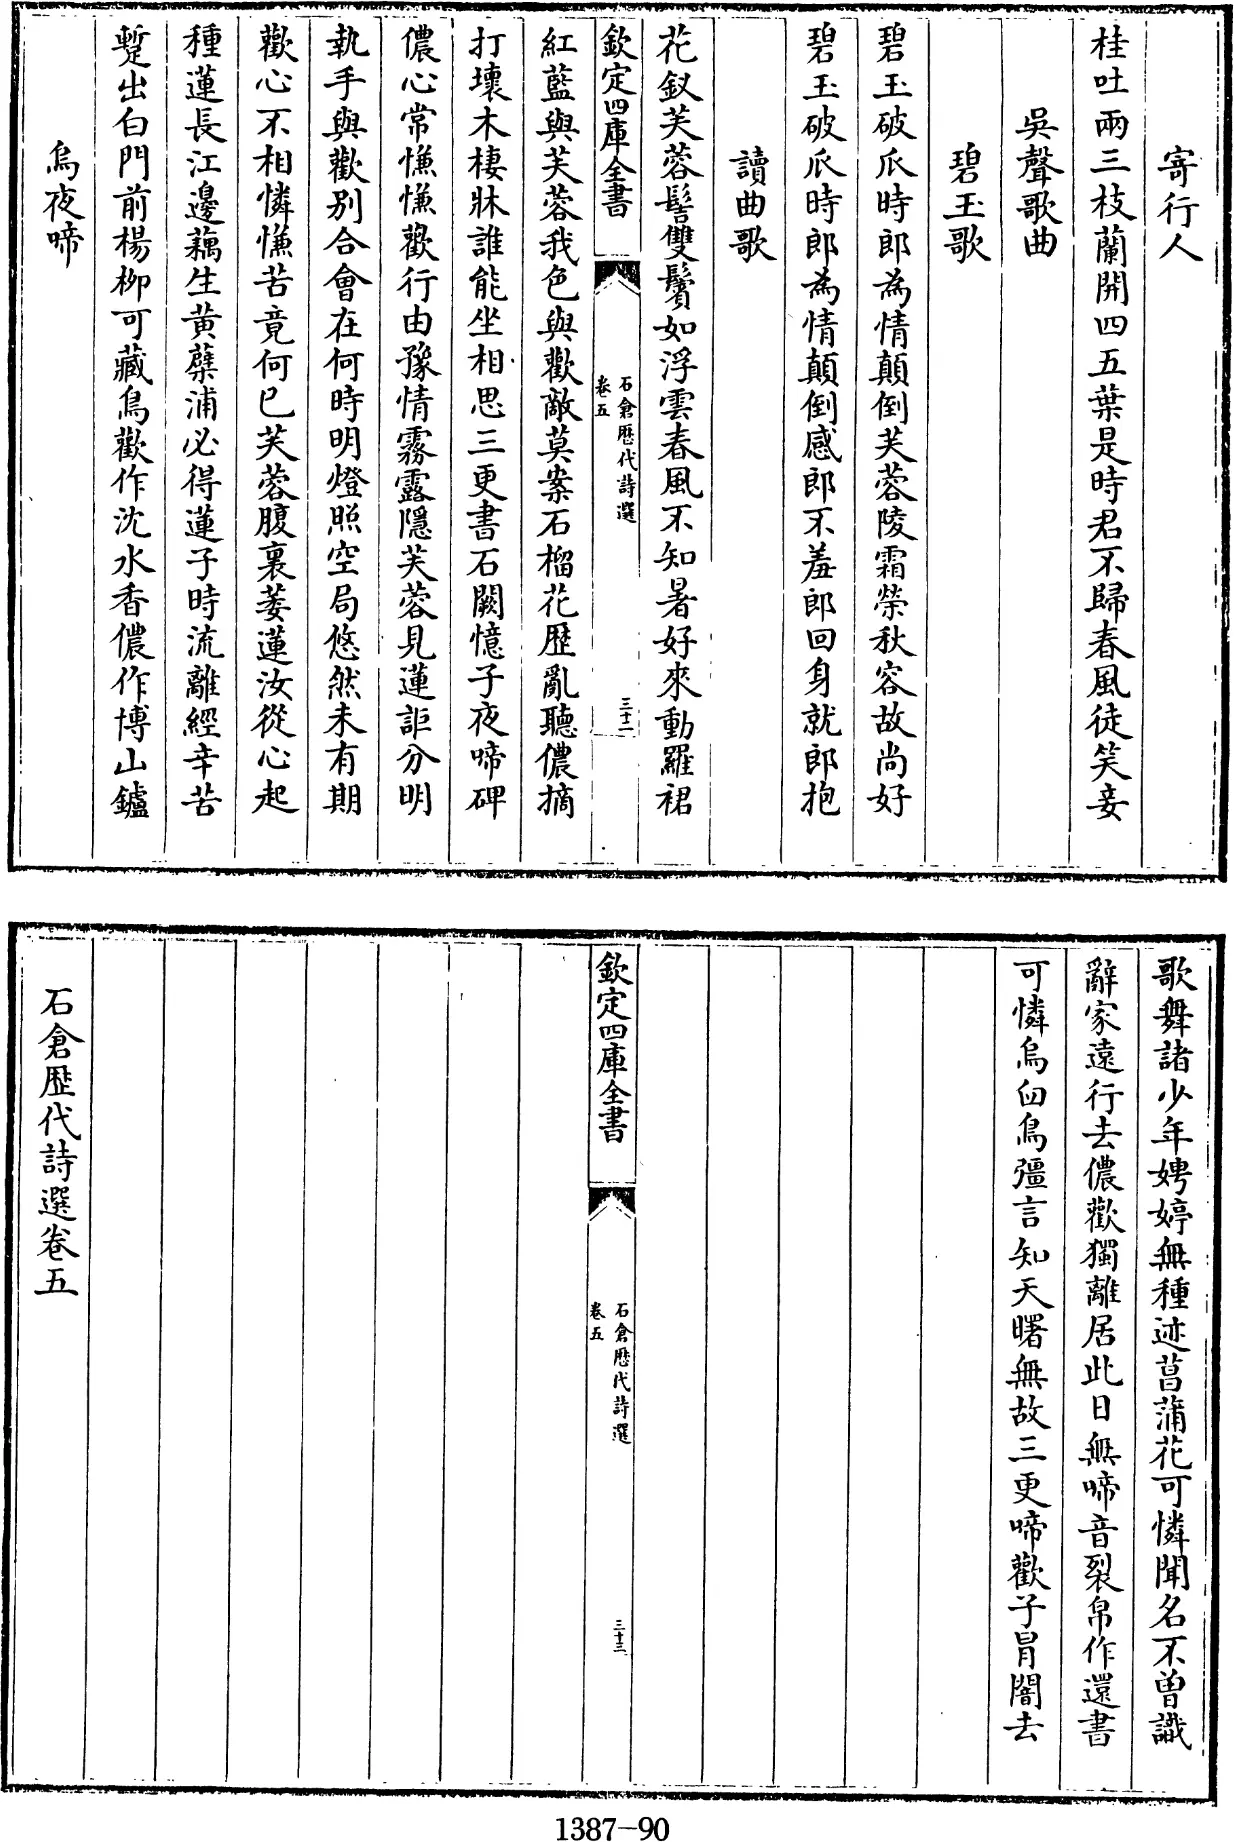 寄行人
桂吐兩三枝蘭開四五葉是時君不歸春風徒笑妾
吳聲歌曲
碧玉歌
碧玉破瓜時郎為情顛倒芙蓉陵霜榮秋容故尚好
碧玉破瓜時郎為情顛倒感郎不羞郎回身就郎抱
讀曲歌
花釵芙蓉髻雙鬢如浮雲春風不知暑好來動羅裙
欽定四庫全書
石倉歷代詩選
卷五
三十二
紅藍與芙蓉我色與歡敵莫案石榴花歷亂聽儂摘
打壞木棲牀誰能坐相思三更書石闕憶子夜啼碑
儂心常慊慊歡行由豫情霧露隱芙蓉見蓮詎分明
執手與歡別合會在何時明燈照空局悠然未有期
歡心不相憐慊苦竟何已芙蓉腹裏萎蓮汝從心起
種蓮長江邊藕生黄蘗浦必得蓮子時流離經辛苦
蹔出白門前楊柳可藏烏歡作沈水香儂作博山鑪
烏夜啼
歌舞諸少年娉婷無種迹菖蒲花可憐聞名不曽識
辭家遠行去儂歡獨離居此日無啼音裂帛作還書
可憐烏臼鳥彊言知天曙無故三更啼歡子冒闇去
欽定四庫全書
石倉歷代詩選
卷五
三十三
石倉歷代詩選卷五
1387-90